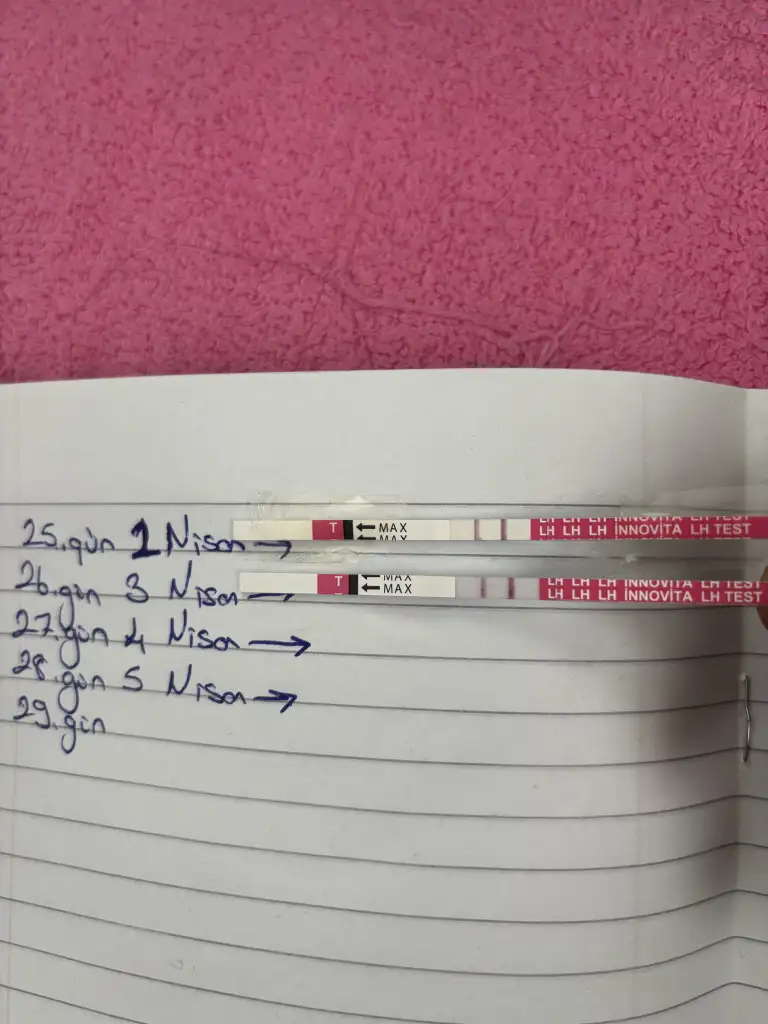 25.gün 1 Nisan →
T ← MAX
← MAX
LH LH LH İNNOVİTA LH TEST
LH LH LH İNNOVİTA LH TEST
26.gün 3 Nisan →
T ← MAX
← MAX
LH LH LH İNNOVİTA LH TEST
LH LH LH İNNOVİTA LH TEST
27.gün 4 Nisan →
28.gün 5 Nisan →
29.gün